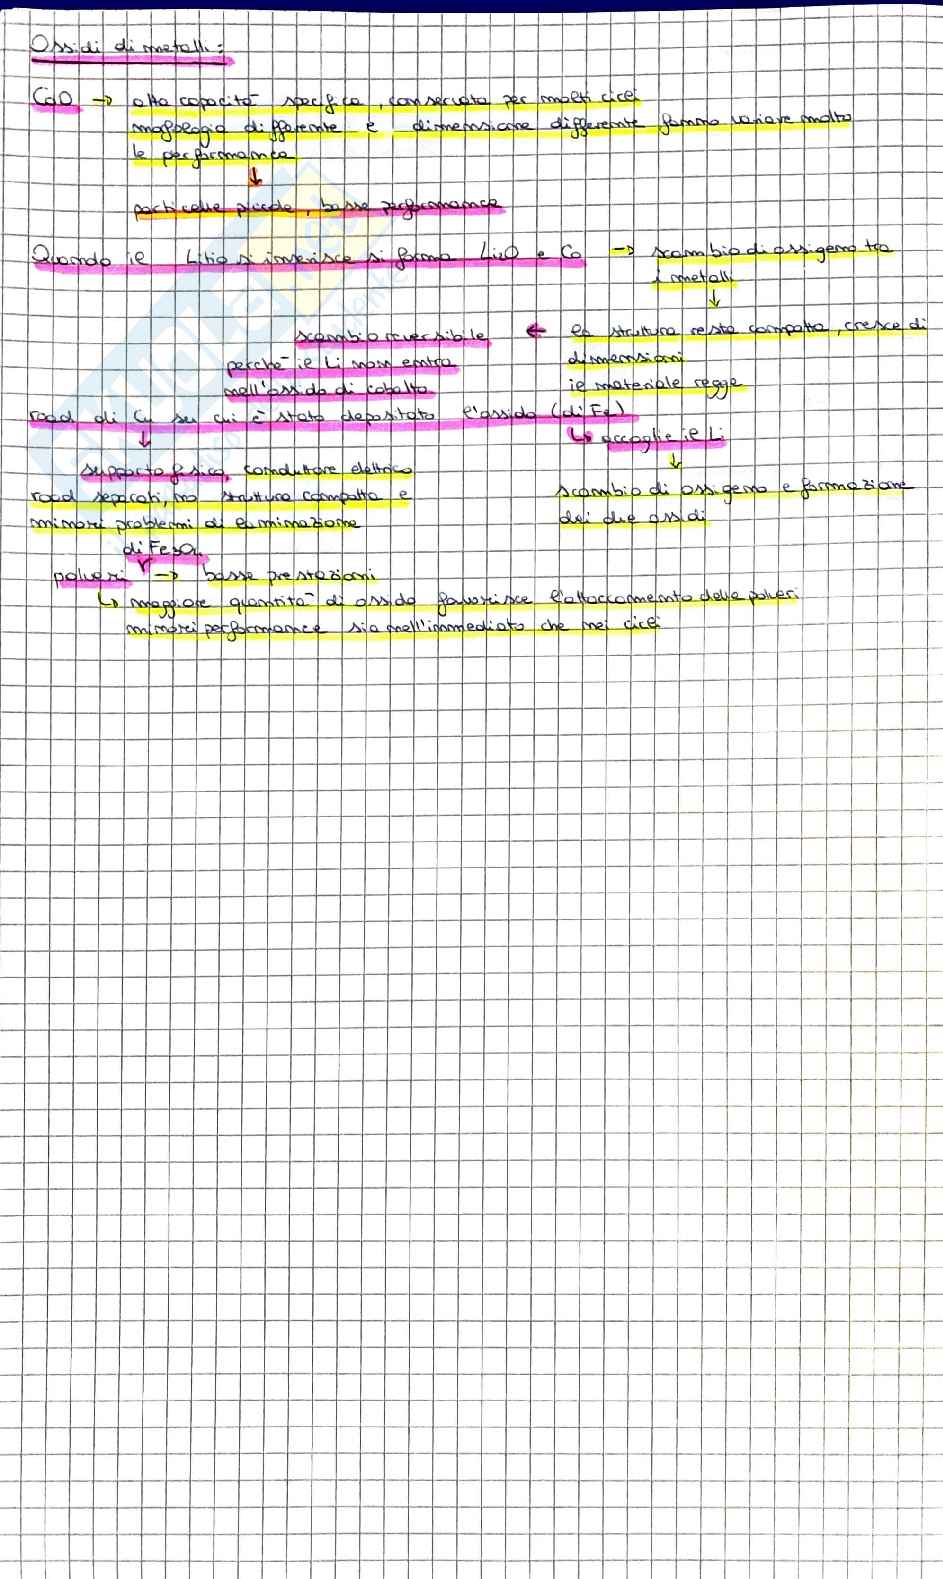 Ossidi di metalli:
CoO → alta capacità specifica, conservata per molti cicli
morfologia differente e dimensione differente fanno variare molto
le performance
↓
particelle piccole, basse performance
Quando il Litio si inserisce si forma Li2O e Co → scambio di ossigeno tra
i metalli
↓
scambio reversibile ← la struttura resta compatta, cresce di
perché il Li non entra dimensioni
nell'ossido di cobalto. il materiale regge
road di Cu su cui è stato depositato l'ossido (di Fe)
↓ ↳ accoglie il Li
supporto fisico, conduttore elettrico ↓
road separati, no struttura compatta e scambio di ossigeno e formazione
minori problemi di eliminazione dei due ossidi
di Fe3O4
polveri → basse prestazioni
↳ maggiore quantità di ossido favorisce l'attaccamento delle polveri
minori performance sia nell'immediato che nei cicli